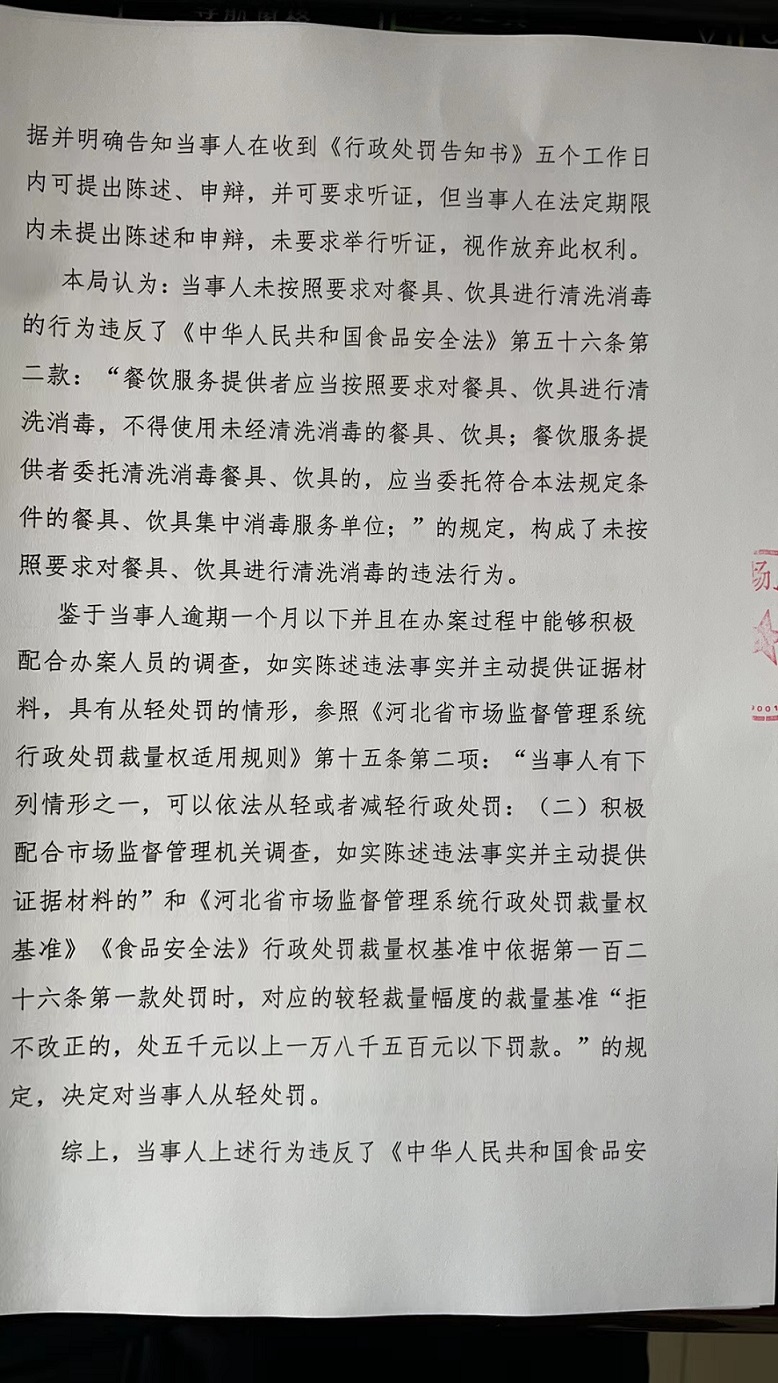 据并明确告知当事人在收到《行政处罚告知书》五个工作日
内可提出陈述、申辩，并可要求听证，但当事人在法定期限
内未提出陈述和申辩，未要求举行听证，视作放弃此权利。
本局认为：当事人未按照要求对餐具、饮具进行清洗消毒
的行为违反了《中华人民共和国食品安全法》第五十六条第
二款：“餐饮服务提供者应当按照要求对餐具、饮具进行清
洗消毒，不得使用未经清洗消毒的餐具、饮具；餐饮服务提
供者委托清洗消毒餐具、饮具的，应当委托符合本法规定条
件的餐具、饮具集中消毒服务单位；”的规定，构成了未按
照要求对餐具、饮具进行清洗消毒的违法行为。
鉴于当事人逾期一个月以下并且在办案过程中能够积极
配合办案人员的调查，如实陈述违法事实并主动提供证据材
料，具有从轻处罚的情形，参照《河北省市场监督管理系统
行政处罚裁量权适用规则》第十五条第二项：“当事人有下
列情形之一，可以依法从轻或者减轻行政处罚：（二）积极
配合市场监督管理机关调查，如实陈述违法事实并主动提供
证据材料的”和《河北省市场监督管理系统行政处罚裁量权
基准》《食品安全法》行政处罚裁量权基准中依据第一百二
十六条第一款处罚时，对应的较轻裁量幅度的裁量基准“拒
不改正的，处五千元以上一万八千五百元以下罚款。”的规
定，决定对当事人从轻处罚。
综上，当事人上述行为违反了《中华人民共和国食品安
场